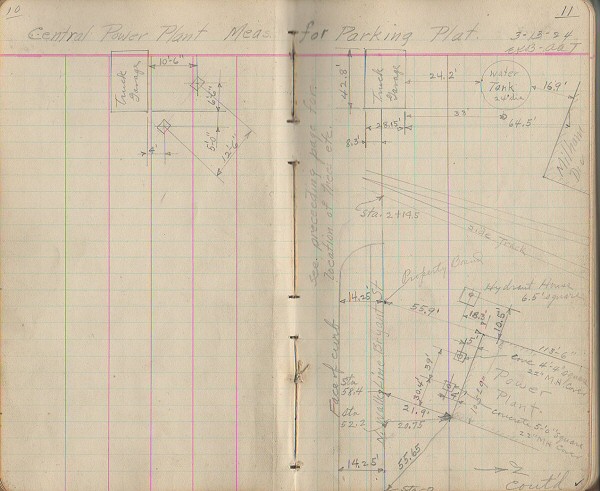 10
Central Power Plant Meas. for Parking Plat.
11
3-13-24
Truck Garage
10'-6"
6'6"
5'-0"
12'-6"
4'
42.8'
Truck Garage
24.2'
Water Tank
24' dia
16.9'
33'
64.5'
28.15'
8.3'
See preceeding page for
location of trees etc.
Sta. 2+14.5
side Track
Property Corner
Hydrant House
6.5' square
14.25'
55.9'
18.3'
10.5'
118'-6"
Face of curb
Bryant St
39'
30.4'
Sta
58.4
Sta
52.2
21.9'
20.75
Power Plant
Conc 4'-4" square
22" M.H. Cover
Concrete 5'-0" square
22" M.H. Cover
14.25'
55.65
South